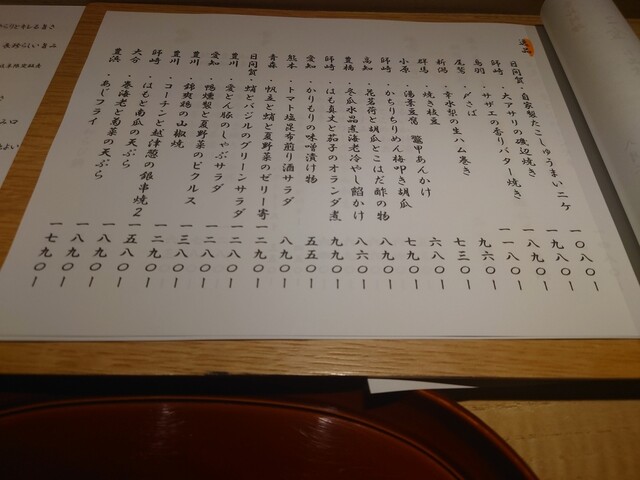 逸品
日間賀・自家製たこしゅうまい二ケ 一〇八〇ー
師崎・大アサリの磯辺焼き 一九八〇ー
鳥羽・サザエの香りバター焼き 一八九〇ー
尾鷲・〆さば 一一八〇ー
新潟・幸水梨の生ハム巻き 九六〇ー
群馬・焼き枝豆 七三〇ー
小原・湯葉豆腐 鼈甲あんかけ 六八〇ー
師崎・かちりちりめん梅叩き胡瓜 七九〇ー
高知・花茗荷と胡瓜とこはだ酢の物 九八〇ー
豊橋・冬瓜水晶煮海老冷やし餡かけ 八六〇ー
師崎・はも真丈と茄子のオランダ煮 九九〇ー
愛知・かりもりの味噌漬け物 五五〇ー
熊本・トマト塩昆布煎り酒サラダ 八九〇ー
青森・帆立と蛸と夏野菜のゼリー寄 一二九〇ー
日間賀・蛸とバジルのグリーンサラダ 一八八〇ー
豊川・愛とん豚のしゃぶサラダ 一二八〇ー
愛知・鴨燻製と夏野菜のピクルス 一三八〇ー
豊川・錦爽鶏の山椒焼 一二九〇ー
豊川・コーチンと越津葱の銀串焼2 一五八〇ー
師崎・はもと南瓜の天ぷら 一八九〇ー
大合・巻海老と夏菜の天ぷら 一八九〇ー
豊浜・あじフライ 一七九〇ー